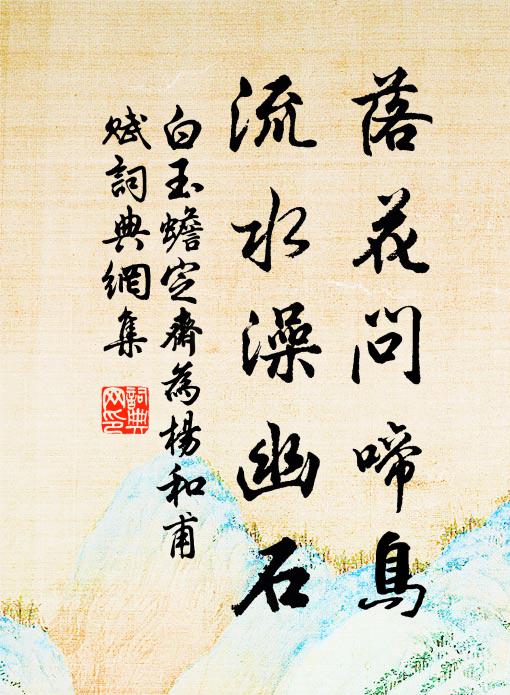 落花問啼鳥
流水澡幽石
白玉蟾定齋為楊和甫
賦詞典網集
詞典網印